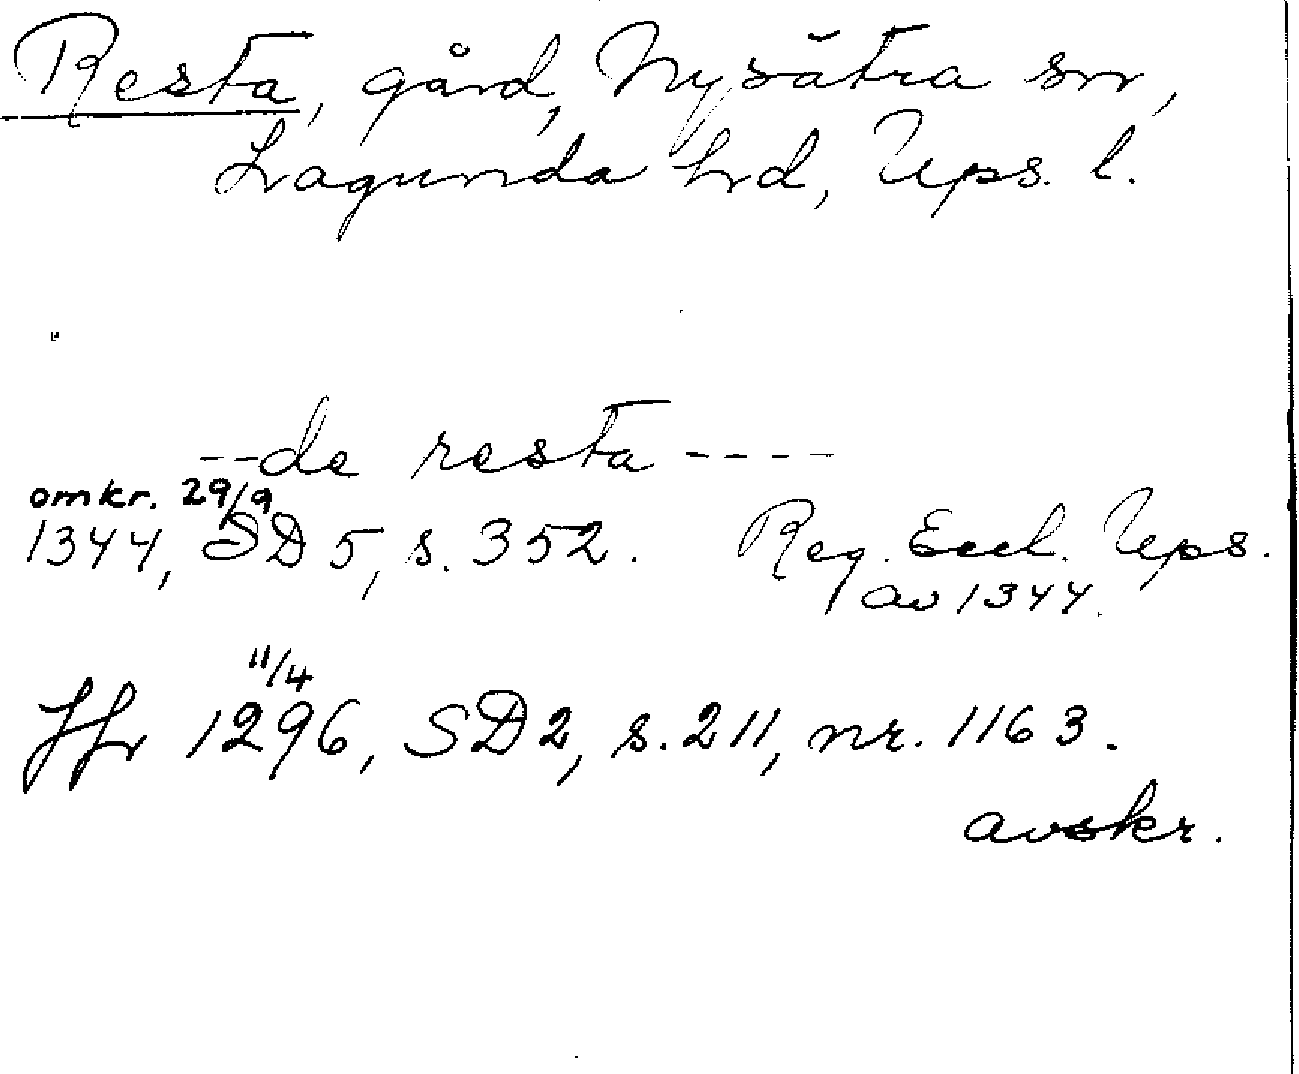 Resta, gård, Nysätra sn,
Lagunda hd, Ups. l.
--de resta----
omkr. 29/9
1344, SD 5, s. 352. Reg. Eccl. Ups.
av 1344.
11/4
Jfr 1296, SD 2, s. 211, nr. 1163.
avskr.